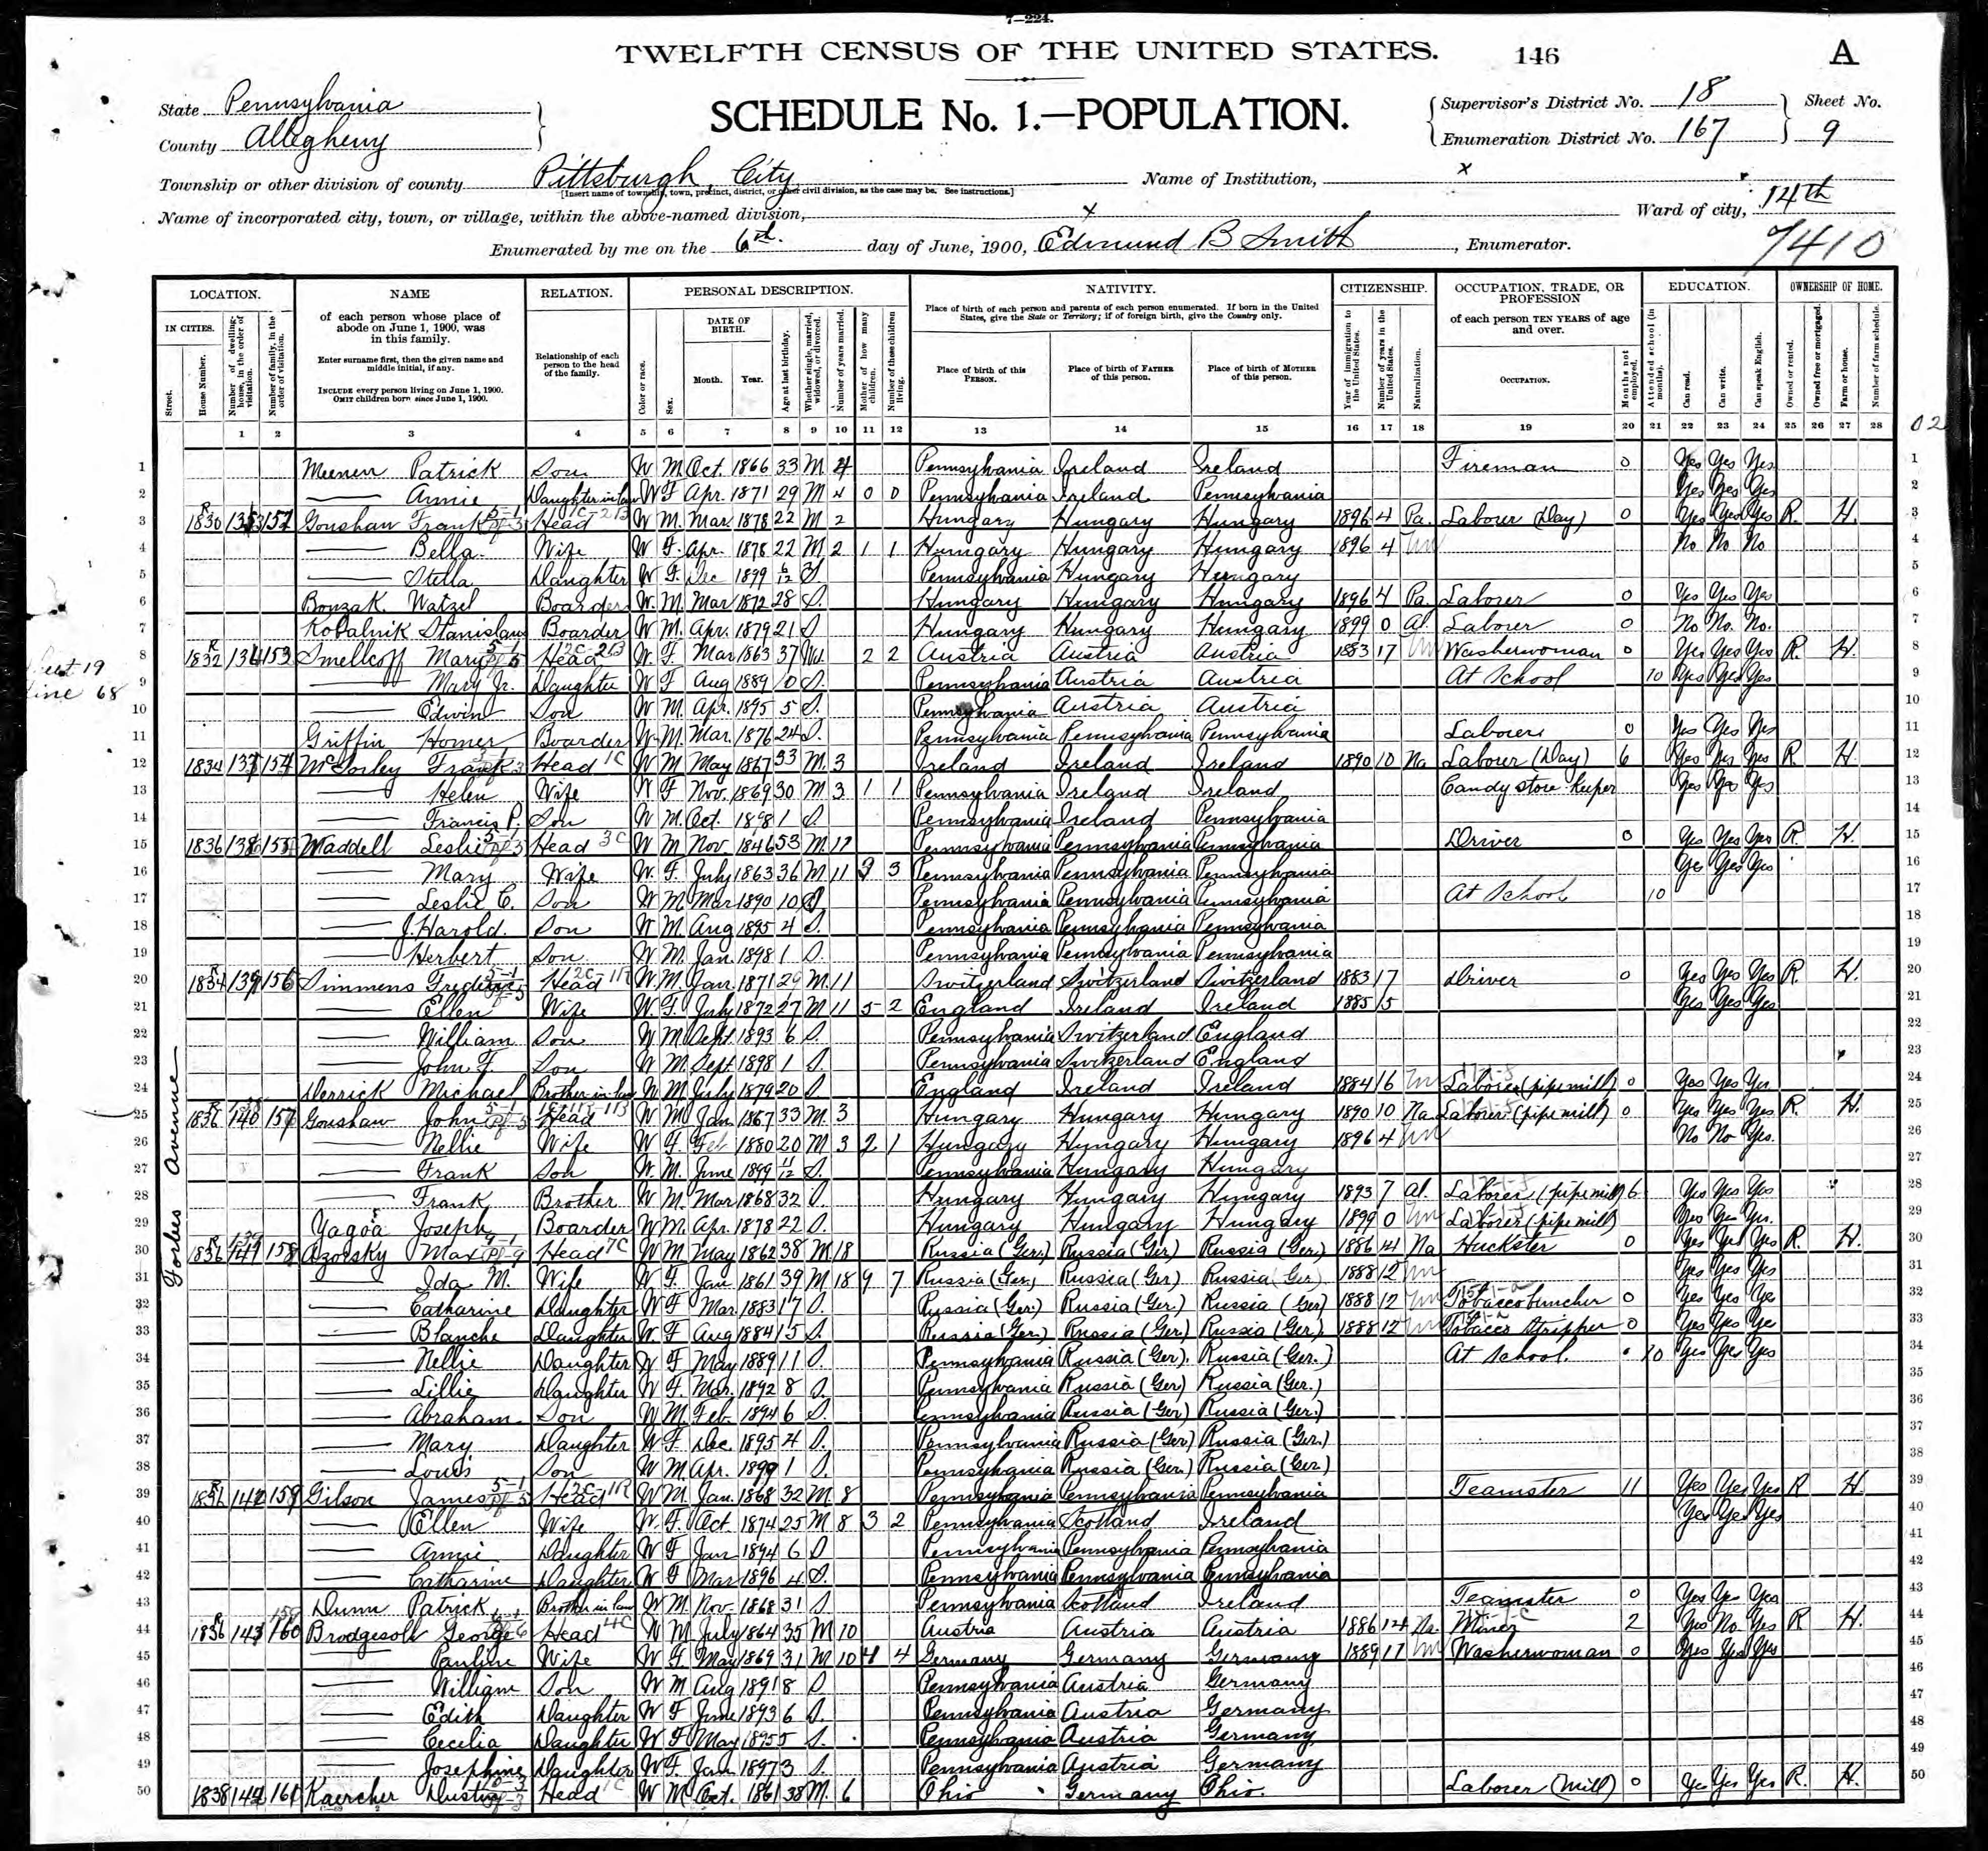 7—224.
TWELFTH CENSUS OF THE UNITED STATES.
146
A
State Pennsylvania
County Allegheny
SCHEDULE No. 1.—POPULATION.
Supervisor's District No. 18
Enumeration District No. 167
Sheet No.
9
Township or other division of county Pittsburgh, City
[Insert name of township, town, precinct, district, or other civil division, as the case may be. See instructions.]
Name of Institution, x
Name of incorporated city, town, or village, within the above-named division, x
Ward of city, 14th
Enumerated by me on the 6th. day of June, 1900, Edmund B Smith, Enumerator.
7410
LOCATION. NAME RELATION. PERSONAL DESCRIPTION. NATIVITY. CITIZENSHIP. OCCUPATION, TRADE, OR PROFESSION EDUCATION. OWNERSHIP OF HOME.
IN CITIES. Street. House Number. Number of dwelling-house, in the order of visitation. Number of family, in the order of visitation.
of each person whose place of abode on June 1, 1900, was in this family.
Enter surname first, then the given name and middle initial, if any.
INCLUDE every person living on June 1, 1900. OMIT children born since June 1, 1900.
Relationship of each person to the head of the family.
Color or race. Sex. DATE OF BIRTH. Month. Year. Age at last birthday. Whether single, married, widowed, or divorced. Number of years married. Mother of how many children. Number of these children living.
Place of birth of each person and parents of each person enumerated. If born in the United States, give the State or Territory; if of foreign birth, give the Country only.
Place of birth of this PERSON. Place of birth of FATHER of this person. Place of birth of MOTHER of this person.
Year of immigration to the United States. Number of years in the United States. Naturalization.
of each person TEN YEARS of age and over.
OCCUPATION. Months not employed.
Attended school (in months). Can read. Can write. Can speak English.
Owned or rented. Owned free or mortgaged. Farm or house. Number of farm schedule.
1 2 3 4 5 6 7 8 9 10 11 12 13 14 15 16 17 18 19 20 21 22 23 24 25 26 27 28
02
Forbes Avenue
1 Patrick Son W M Oct. 1866 33 M 4 Pennsylvania Ireland Ireland Fireman 0 Yes Yes Yes 1
2 Annie Daughter in law W F Apr. 1871 29 M 4 0 0 Pennsylvania Ireland Pennsylvania Yes Yes Yes 2
3 1830 Gonshaw Frank Head W M. Mar. 1878 22 M 2 Hungary Hungary Hungary 1896 4 Pa. Laborer (Day) 0 Yes Yes Yes R. H. 3
4 Bella Wife W F. Apr. 1878 22 M 2 1 1 Hungary Hungary Hungary 1896 4 No No No 4
5 Stella Daughter W F. Dec 1899 6/12 S. Pennsylvania Hungary Hungary 5
6 Bonzak Watzel Boarder W. M. Mar 1872 28 S. Hungary Hungary Hungary 1896 4 Pa. Laborer 0 Yes Yes Yes 6
7 Kobalnik Stanislaw Boarder W M. Apr. 1879 21 S Hungary Hungary Hungary 1899 0 Al. Laborer 0 No. No. No. 7
8 1832 153 Smellcoff Mary Head W. F Mar 1863 37 Wd 2 2 Austria Austria Austria 1883 17 Washerwoman 0 Yes Yes Yes R. H. 8
9 Mary Jr. Daughter W F Aug 1889 10 S. Pennsylvania Austria Austria At School 10 Yes Yes Yes 9
10 Edwin Son W M. Apr. 1895 5 S. Pennsylvania Austria Austria 10
11 Griffin Homer Boarder W M. Mar. 1876 24 S. Pennsylvania Pennsylvania Pennsylvania Laborer 0 Yes Yes Yes 11
12 1834 154 McSorley Frank Head W M May 1867 33 M. 3 Ireland Ireland Ireland 1890 10 Na Laborer (Day) 6 Yes Yes Yes R H. 12
13 Helen Wife W F Nov. 1869 30 M 3 1 1 Pennsylvania Ireland Ireland Candy store keeper Yes Yes Yes 13
14 Francis P. Son W M. Oct. 1898 1 S Pennsylvania Ireland Pennsylvania 14
15 1836 155 Waddell Leslie Head W M Nov. 1846 53 M Pennsylvania Pennsylvania Pennsylvania Driver 0 Yes Yes Yes R. H. 15
16 Mary Wife W. F. July 1863 36 M 11 3 3 Pennsylvania Pennsylvania Pennsylvania Yes Yes Yes 16
17 Leslie C. Son W M. Mar 1890 10 S Pennsylvania Pennsylvania Pennsylvania At School 10 17
18 J. Harold. Son W M. Aug 1895 4 S. Pennsylvania Pennsylvania Pennsylvania 18
19 Herbert Son W M. Jan. 1898 1 S. Pennsylvania Pennsylvania Pennsylvania 19
20 1834 139 156 Simmens Head W. M. Jan. 1871 29 M. 11 Switzerland Switzerland Switzerland 1883 17 Driver 0 Yes Yes Yes R. H. 20
21 Ellen Wife W. F. July 1872 27 M 11 5 2 England Ireland Ireland 1885 15 Yes Yes Yes 21
22 William Son W M Sept. 1893 6 S. Pennsylvania Switzerland England 22
23 John F. Son W M. Sept 1898 1 S. Pennsylvania Switzerland England 23
24 Derrick Michael Brother-in-law W M July 1879 20 S. England Ireland Ireland 1884 16 Laborer (pipe mill) 0 Yes Yes Yes 24
25 1836 140 157 Gonshaw John Head W M Jan 1867 33 M. 3 Hungary Hungary Hungary 1890 10 Na Laborer (pipe mill) 0 Yes Yes Yes R. H. 25
26 Nellie Wife W F. Feb 1880 20 M 3 2 1 Hungary Hungary Hungary 1896 4 No No Yes. 26
27 Frank Son W. M. June 1899 11/12 S. Pennsylvania Hungary Hungary 27
28 Frank Brother W M. Mar 1868 32 S. Hungary Hungary Hungary 1893 7 Al. Laborer (pipe mill) 6 Yes Yes Yes 28
29 Joseph Boarder W M. Apr. 1878 22 S. Hungary Hungary Hungary 1899 0 Laborer (pipe mill) Yes Yes Yes. 29
30 1836 141 158 Azorsky Max Head W M May 1862 38 M 18 Russia (Ger.) Russia (Ger) Russia (Ger.) 1886 14 Na Huckster 0 Yes Yes Yes R. H. 30
31 Ida M. Wife W F. Jan 1861 39 M 18 9 7 Russia (Ger) Russia (Ger) Russia (Ger) 1888 12 Yes Yes Yes 31
32 Catharine Daughter W F Mar. 1883 17 S. Russia (Ger.) Russia (Ger.) Russia (Ger) 1888 12 Tobacco buncher 0 Yes Yes Yes 32
33 Blanche Daughter W F Aug 1884 15 S. Russia (Ger.) Russia (Ger) Russia (Ger.) 1888 12 Tobacco Stripper 0 Yes Yes Yes 33
34 Nellie Daughter W F May 1889 11 S. Pennsylvania Russia (Ger). Russia (Ger.) At School. 10 Yes Yes Yes 34
35 Lillie Daughter W F. Mar. 1892 8 S. Pennsylvania Russia (Ger) Russia (Ger.) 35
36 Abraham Son W M Feb 1894 6 S. Pennsylvania Russia (Ger) Russia (Ger.) 36
37 Mary Daughter W F. Dec. 1895 4 S. Pennsylvania Russia (Ger) Russia (Ger.) 37
38 Louis Son W M. Apr. 1899 1 S. Pennsylvania Russia (Ger.) Russia (Ger) 38
39 1836 142 159 Gilson James Head W M. Jan. 1868 32 M. 8 Pennsylvania Pennsylvania Pennsylvania Teamster 11 Yes Yes Yes R H. 39
40 Ellen Wife W. F. Oct. 1874 25 M 8 3 2 Pennsylvania Scotland Ireland Yes Yes Yes 40
41 Annie Daughter W F Jan 1894 6 S Pennsylvania Pennsylvania Pennsylvania 41
42 Catharine Daughter W F Mar 1896 4 S. Pennsylvania Pennsylvania Pennsylvania 42
43 Dunn Patrick Brother in law W M. Nov. 1868 31 S Pennsylvania Scotland Ireland Teamster 0 Yes Yes Yes 43
44 1836 143 160 George Head W M July 1864 35 M 10 Austria Austria Austria 1886 14 Na. Miner 2 Yes No. Yes R H. 44
45 Pauline Wife W F May 1869 31 M 10 4 4 Germany Germany Germany 1889 11 Washerwoman 0 Yes Yes Yes 45
46 William Son W M Aug 1891 8 S Pennsylvania Austria Germany 46
47 Edith Daughter W F June 1893 6 S. Pennsylvania Austria Germany 47
48 Cecilia Daughter W F May 1895 5 S. Pennsylvania Austria Germany 48
49 Josephine Daughter W F. Jan 1897 3 S. Pennsylvania Austria Germany 49
50 1838 144 161 Kaercher Head W M Oct. 1861 38 M. 6 Ohio Germany Ohio. Laborer (Mill) 0 Yes Yes Yes R. H. 50